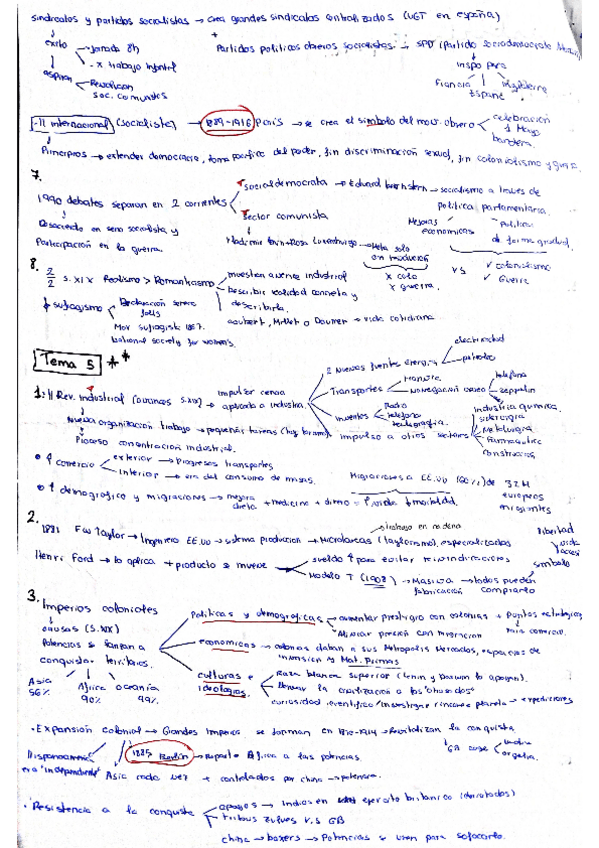 sindicatos y partidos socialistas → crea grandes sindicatos centralizados (UGT en España)
+
éxito → jornada 8h
Partidos políticos obreros socialistas → SPD (Partido socialdemócrata
- x trabajo infantil
inspo para
aspiran → Revolución
soc. comunistas
Francia España Inglaterra
- II Internacional (socialista) → 1889-1916 París → se crea el símbolo del mov. obrero
celebración
1 Mayo
bandera.
Principios → extender democracia, toma pacífica del poder, fin discriminación sexual, fin colonialismo y guerra.
7.
socialdemocrata → Eduard Bernstein → socialismo a traves de
1990 debates separan en 2 corrientes
política parlamentaria.
Sector comunista
Desacuerdo en seno socialista y
Mejoras economicas
Políticas de forma gradual.
Participación en la guerra.
Vladimir Lenin + Rosa Luxemburgo → Meta solo
en revolución
x colo
x guerra.
vs
✓ colonialismo
✓ Guerra
8.
2/2 s. XIX Realismo > Romanticismo
muestran avance industrial
Describir realidad concreta y
describirla.
sufragismo
Declaración seneca
falls
Mov sufragista 1867.
National society for women's.
Courbert, Millet o Daumer → vida cotidiana
Tema 5 **
electricidad
2 Nuevas fuentes energía
petroleo
1. II Rev. Industrial (ultimos S.XIX) → impulsar ciencia
aplicada a industria.
Transportes
navegación aerea
zeppelin
inventos
Radio
telefono
telegrafia.
Nueva organización trabajo → pequeñas tareas
Proceso concentración industrial.
impulso a otros sectores
Industria quimica.
siderurgia
Metalurgia
Farmaceutic
Construccion
↑ comercio
exterior → progresos transportes
interior → era del consumo de masas.
Migraciones a EE.UU (60%) de 32M
europeos
migrantes
↑ demografico y migraciones → mejora
dieta + medicina + dinero = ↑ vida ↓ mortalidad.
2.
trabajo en cadena
libertad
1881 F.W Taylor → Ingeniero EE.UU → sistema produccion → Microtareas (taylorismo), especializadas
Henri Ford → lo aplica + producto se mueve
sueldo ↑ para evitar reivindicaciones
símbolo
Modelo T (1908) → Masiva → todos pueden
fabricación
comprarlo
3.
Imperios coloniales
Políticas y demograficas → aumentar prestigio con colonias + puntos estrategicos
para comercial.
Aliviar presión con inmigracion
causas (S.XIX)
Potencias se lanzan a
conquistar territorios.
economicas → colonias daban a sus Metropolis Mercados, espacios de
inversion y Mat. Primas
culturas e
ideologías.
Raza blanca superior (Lenin y Darwin lo apoyan).
llevar la civilización a los "ohundos"
curiosidad cientifica / investigar rincones planeta → expediciones
Asia
56%
Africa
90%
oceania
99%.
- Expansión colonial → Grandes imperios se forman en 1870-1914 → Revitalizan la conquista.
Hispanoamerica
era "independiente"
1885 Berlin → Reparto Africa a las potencias.
GB sigue
India
Argelia.
Asia cada vez + controlados por china → potencia.
- Resistencia a la conquista
apoyos → Indios en ejercito britanico (derrotados)
tribus zulues v.s GB
china → boxers → Potencias se unen para sofocarlo.